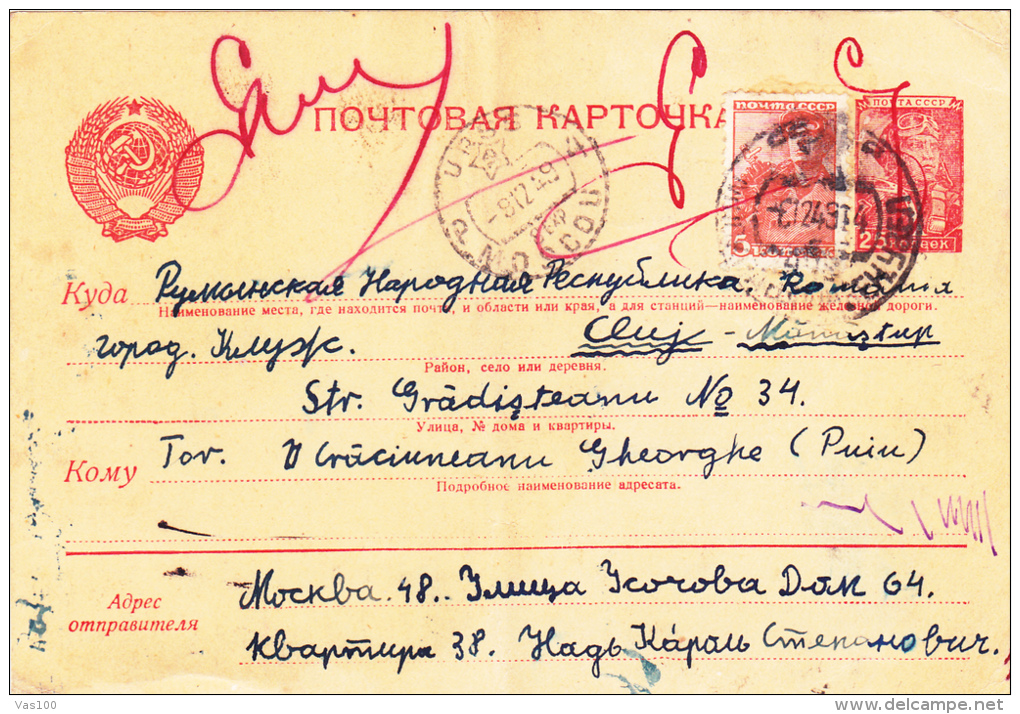 ПОЧТОВАЯ КАРТОЧКА
ПОЧТА СССР
ПОЧТА СССР
25 КОПЕЕК
Куда Румынская Народная Республика. Romania
Наименование места, где находится почта, и области или края, а для станций—наименование железной дороги.
город. Клуж. Cluj - Mănăştur
Район, село или деревня.
Str. Grădişteanu No 34.
Улица, № дома и квартиры.
Кому Tov. Crăciuneanu Gheorghe (Puiu)
Подробное наименование адресата.
Адрес отправителя
Москва. 48.. Улица Усачова Дом 64.
квартира 38. Надь Ка́роль Степанович.
Vas100
www.delcampe.net